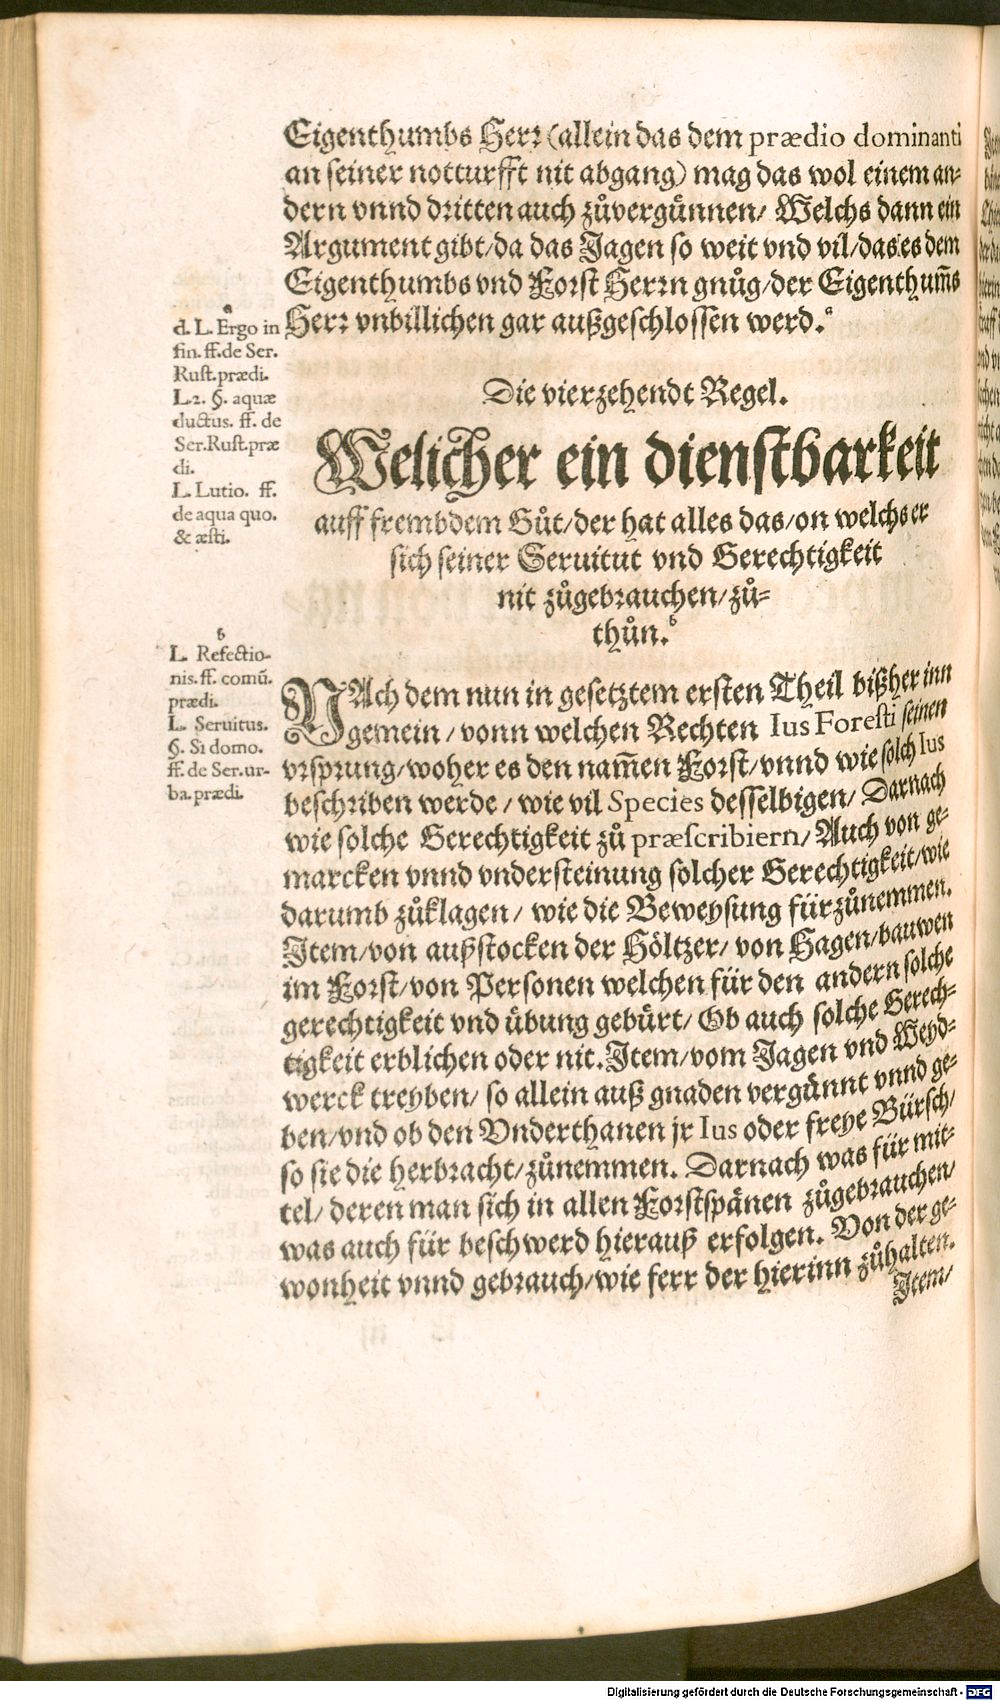 Eigenthumbs Herr (allein das dem prædio dominanti
an seiner notturfft nit abgang) mag das wol einem an=
dern vnnd dritten auch zůvergünnen/ Welchs dann ein
Argument gibt/ da das Jagen so weit vnd vil/ das es dem
Eigenthumbs vnd Forst Herrn gnůg/ der Eigenthum̃s
Herr vnbillichen gar außgeschlossen werd.ᵃ
a
d. L. Ergo in
fin. ff. de Ser.
Rust. prædi.
L. 2. §. aquæ
ductus. ff. de
Ser. Rust. præ
di.
L. Lutio. ff.
de aqua quo.
& æsti.
Die vierzehendt Regel.
Welicher ein dienstbarkeit
auff frembdem Gůt/ der hat alles das/ on welchs er
sich seiner Seruitut vnd Gerechtigkeit
nit zůgebrauchen/ zů=
thůn.ᵇ
b
L. Refectio-
nis. ff. comū.
prædi.
L. Seruitus.
§. Si domo.
ff. de Ser. ur-
ba. prædi.
NAch dem nun in gesetztem ersten Theil bißher inn
gemein/ vonn welchen Rechten Ius Foresti seinen
vrsprung/ woher es den nam̃en Forst/ vnnd wie solch Ius
beschriben werde/ wie vil Species desselbigen/ Darnach
wie solche Gerechtigkeit zů præscribiern/ Auch von ge=
marcken vnnd vndersteinung solcher Gerechtigkeit/ wie
darumb zůklagen/ wie die Beweysung fürzůnemmen.
Item/ von außstocken der Höltzer/ von Hagen/ bauwen
im Forst/ von Personen welchen für den andern solche
gerechtigkeit vnd übung gebürt/ Ob auch solche Gerech=
tigkeit erblichen oder nit. Item/ vom Jagen vnd Weyd=
werck treyben/ so allein auß gnaden vergünnt vnnd ge=
ben/ vnd ob den Vnderthanen jr Ius oder freye Bürsch/
so sie die herbracht/ zůnemmen. Darnach was für mit=
tel/ deren man sich in allen Forstspänen zůgebrauchen/
was auch für beschwerd hierauß erfolgen. Von der ge=
wonheit vnnd gebrauch/ wie ferr der hierinn zůhalten.
Item/
Digitalisierung gefördert durch die Deutsche Forschungsgemeinschaft - DFG